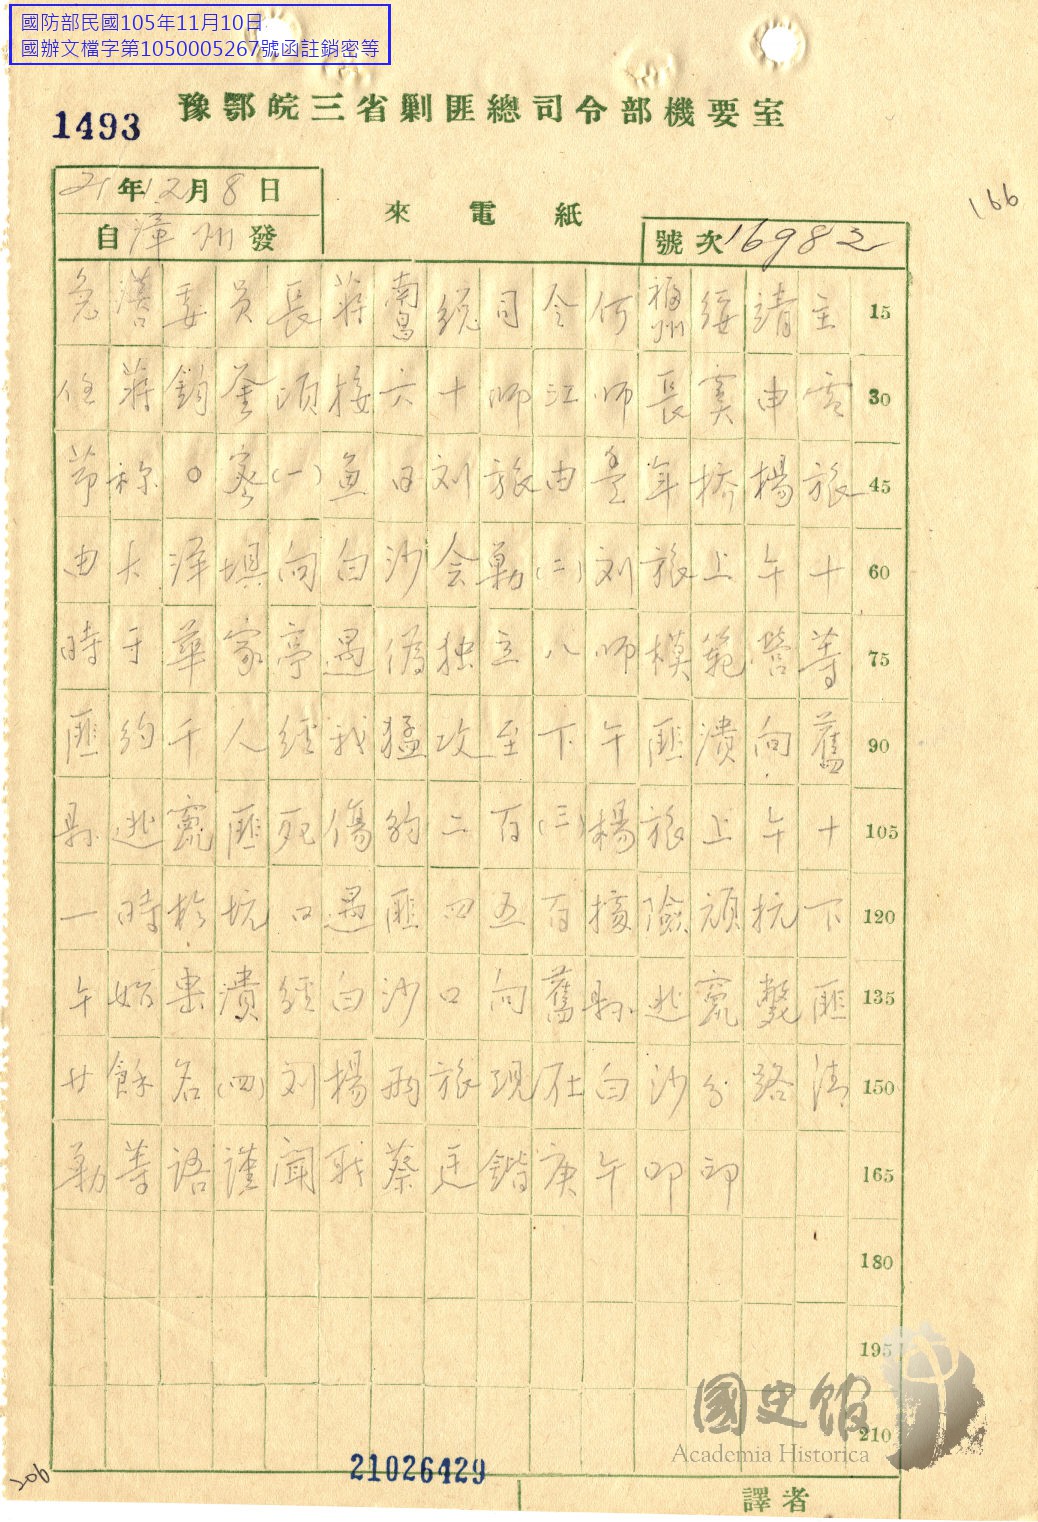 國防部民國105年11月10日
國辦文檔字第1050005267號函註銷密等
1493
豫鄂皖三省剿匪總司令部機要室
166
21年12月8日
自漳州發
來電紙
號次16982
急漢口委員長蔣南昌總司令何福州綏靖主 15
任蔣鈞鑒頃接六十師江師長 申電 30
節称〇密(一)魚日刘旅由豊年桥楊旅 45
由大洋壩向白沙会剿(二)刘旅上午十 60
時于華家亭遇僞独立八師模範營等 75
匪約千人經我猛攻至下午匪潰向舊 90
縣逃竄匪死傷約二百(三)楊旅上午十 105
一時於坑口遇匪四五百據險頑抗下 120
午始 潰經白沙口向舊縣逃竄斃匪 135
廿餘名(四)刘楊兩旅現在白沙分路清 150
剿等語謹聞职蔡廷鍇庚午叩印 165
180
195
210
國史館
Academia Historica
206
21026429
譯者